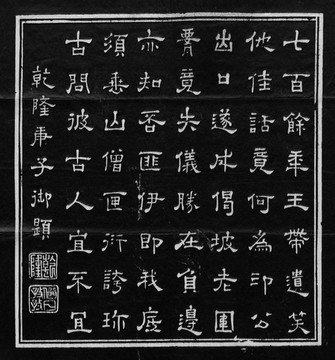 七百餘年玉帶遺笑
他佳話竟何為印公
出口遂成偈坡老圍
腰竟失儀勝在負邊
亦知否匪伊即我底
須垂山僧匣衍誇珍
古問彼古人宜不宜
乾隆庚子御題
乾隆